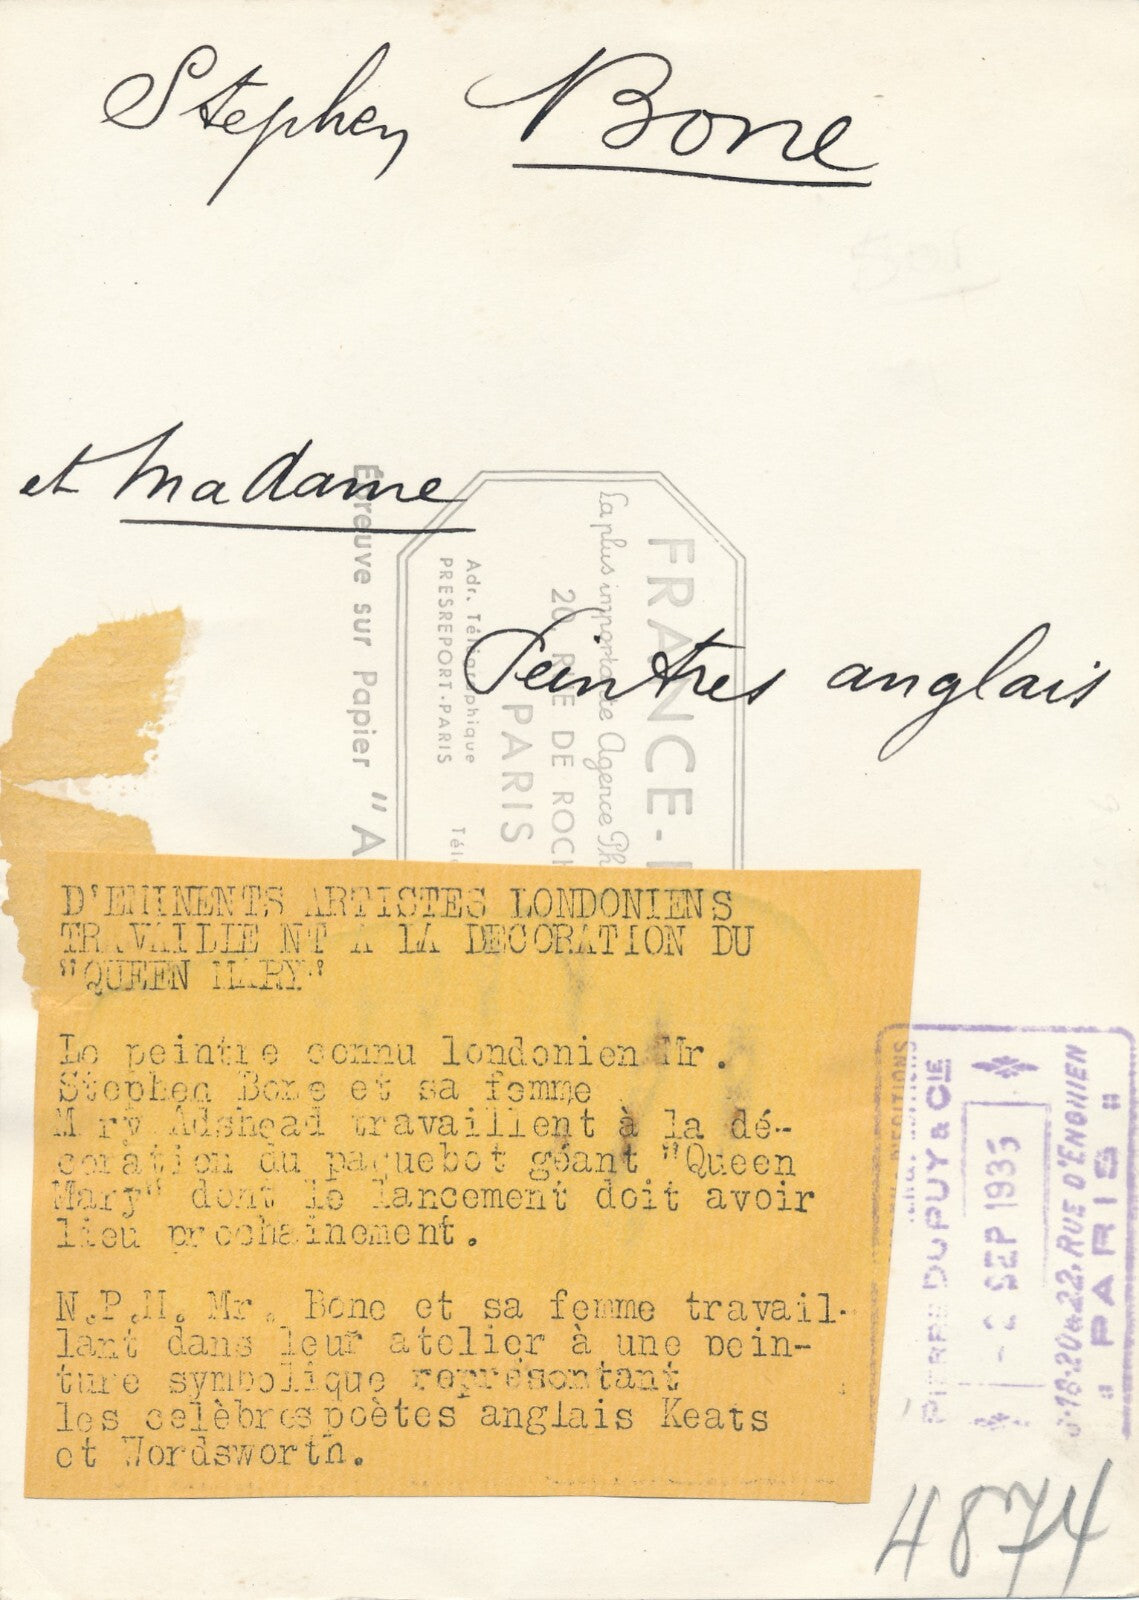 Stephen Bone
et Madame
Peintres anglais
FRANCE-
La plus importante Agence Ph
20 RUE DE ROCH
PARIS
Adr. Télégraphique
PRESREPORT-PARIS
Tél
Épreuve sur Papier "A
D'EMINENTS ARTISTES LONDONIENS
TRAVAILLENT A LA DECORATION DU
"QUEEN MARY"
Le peintre connu londonien Mr.
Stephen Bone et sa femme
Mary Adshead travaillent à la dé-
coration du paquebot géant "Queen
Mary" dont le lancement doit avoir
lieu prochainement.
N.P.H. Mr. Bone et sa femme travail-
lant dans leur atelier à une pein-
ture symbolique représentant
les celèbres poètes anglais Keats
et Wordsworth.
PIERRE DUPUY & CIE
- 2 SEP 1935
18-20 & 22, RUE D'ENGHIEN
" PARIS "
4874